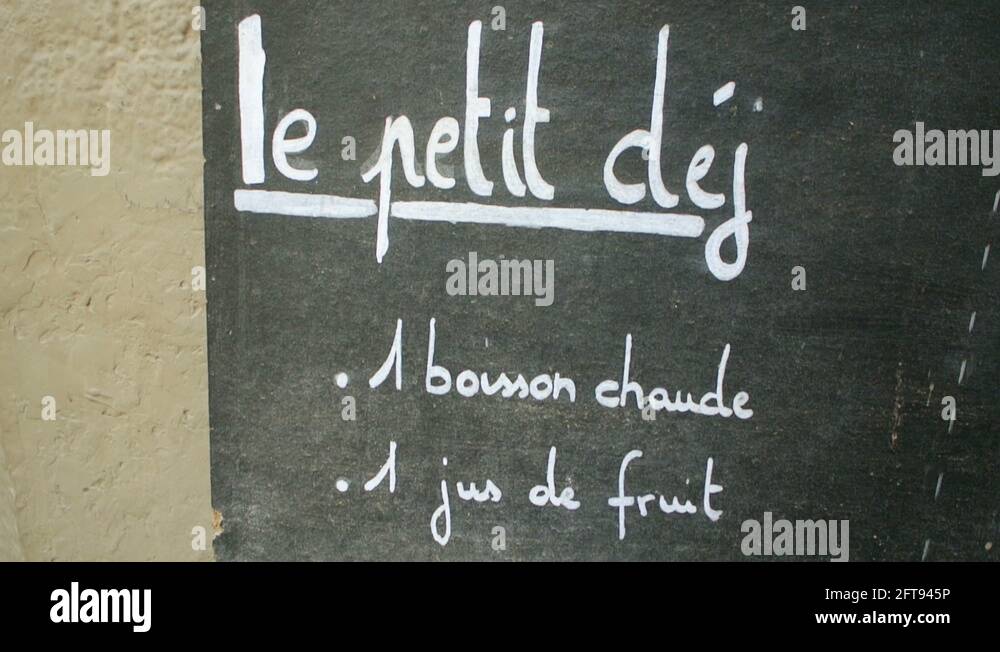 le petit déj
. 1 boisson chaude
. 1 jus de fruit
alamy
a
alamy
Image ID: 2FT945P
www.alamy.com